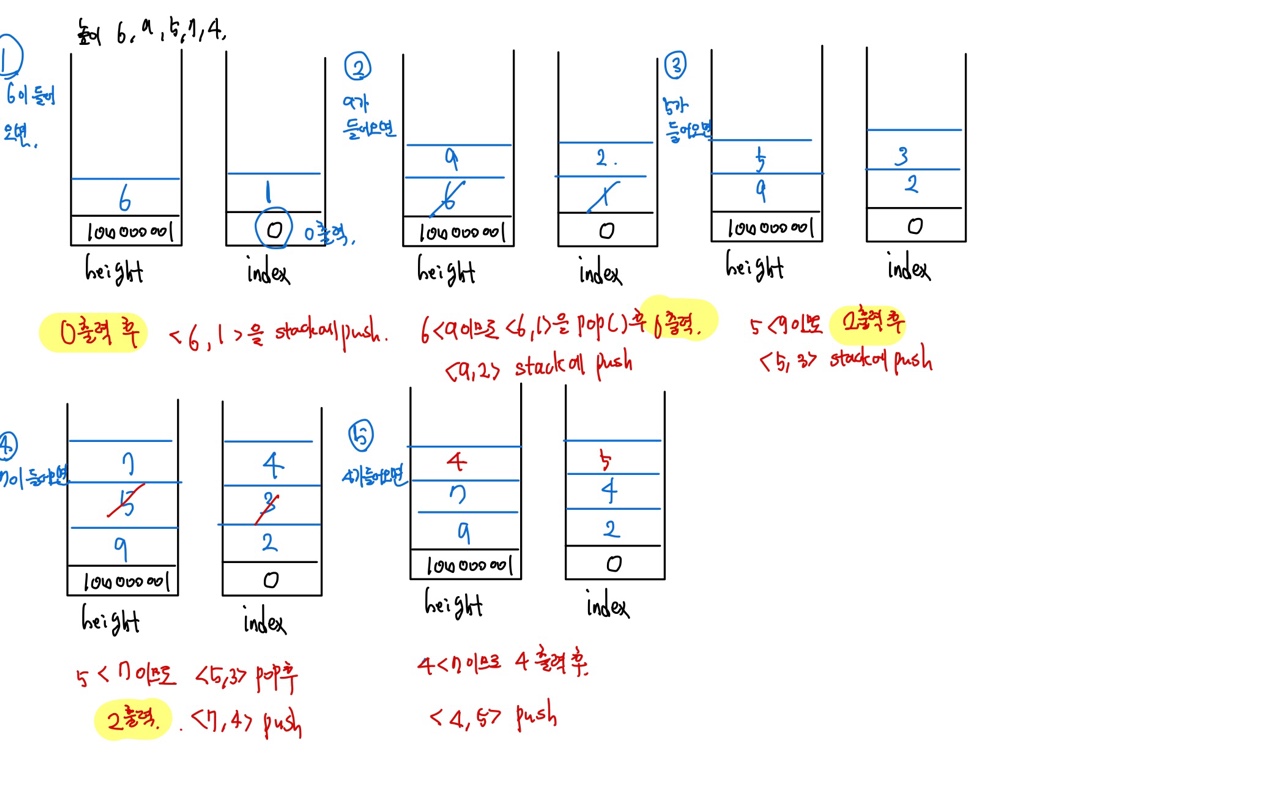 높이 6, 9, 5, 7, 4,
①
6이 들어
오면.
6
100000001
height
1
0
0출력.
index
0출력 후 <6, 1>을 stack에 push.
②
9가
들어오면
9
6
100000001
height
2.
1
0
index
6<9이므로 <6,1>을 pop()후 0출력.
<9,2> stack에 push
③
5가
들어오면
5
9
100000001
height
3
2
0
index
5<9이므로 2출력후
<5, 3> stack에 push
④
7이 들어오면
7
5
9
100000001
height
4
3
2
0
index
5<7이므로 <5,3> pop후
2출력. <7,4> push
⑤
4가들어오면
4
7
9
100000001
height
5
4
2
0
index
4<7이므로 4출력후.
<4, 5> push